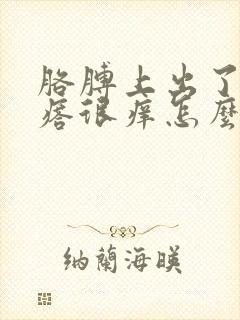 胳膊上出了
痞很痒怎麼
纳蘭海暎